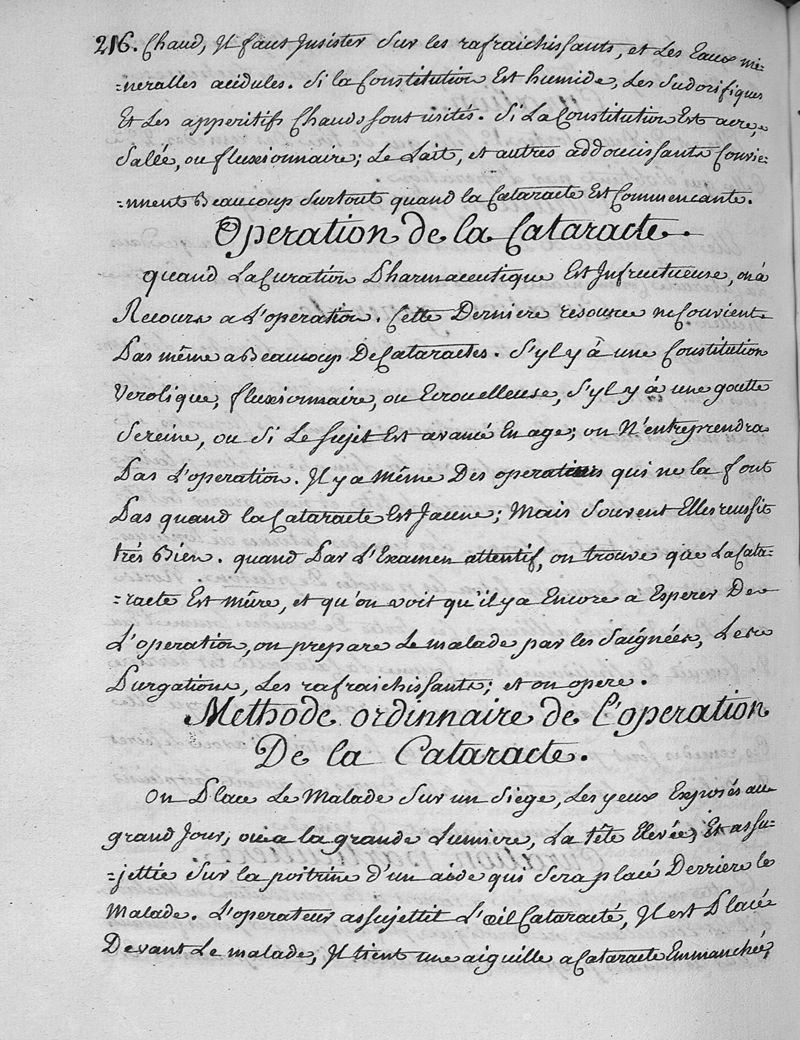 216. Chaud, Il faut Insister Sur les rafraichissants, et Les Eaux mi=
=neralles acidules. Si la Constitution Est humide, Les Sudorifiques
Et Les apperitifs Chauds sont usités. Si La Constitution Est acre,
Salée, ou fluxionnaire; Le Lait, et autres addoucissants Convie=
=nnent Beaucoup Surtout quand la Cataracte Est Commencante.
Operation de la Cataracte.
quand La Curation Pharmaceutique Est Infructueuse, on à
Recours a L'operation. Cette Derniere resource ne Convient
Pas même a Beaucoup De Cataractes. S'yl y à une Constitution
Verolique, fluxionnaire, ou Ecrouelleuse, S'yl y à une goutte
Sereine, ou Si Le Sujet Est avancé En age; on N'entreprendra
Pas L'operation. Il y a même Des operateurs qui ne la font
Pas quand la Cataracte Est Jaune; Mais Souvent Elle reussit
trés Bien. quand Par L'Examen attentif, on trouve que La Cata=
=racte Est mûre, et qu'on voit qu'il y a Encore a Esperer De
L'operation, on prepare Le malade par les Saignées, Les
Purgations, Les rafraichissants; et on opere.
Methode ordinnaire de L'operation
De la Cataracte.
On Place Le Malade Sur un Siege, Les yeux Exposés au
grand Jour, ou a la grande Lumiere, La tête Elevée, Et assu=
=jettie Sur la poitrine d'un aide qui Sera placé Derriere le
Malade. L'operateur assujettit L'œil Cataracté, Il est Placé
Devant Le malade, Il tient une aiguille a Cataracte Emmanchée,